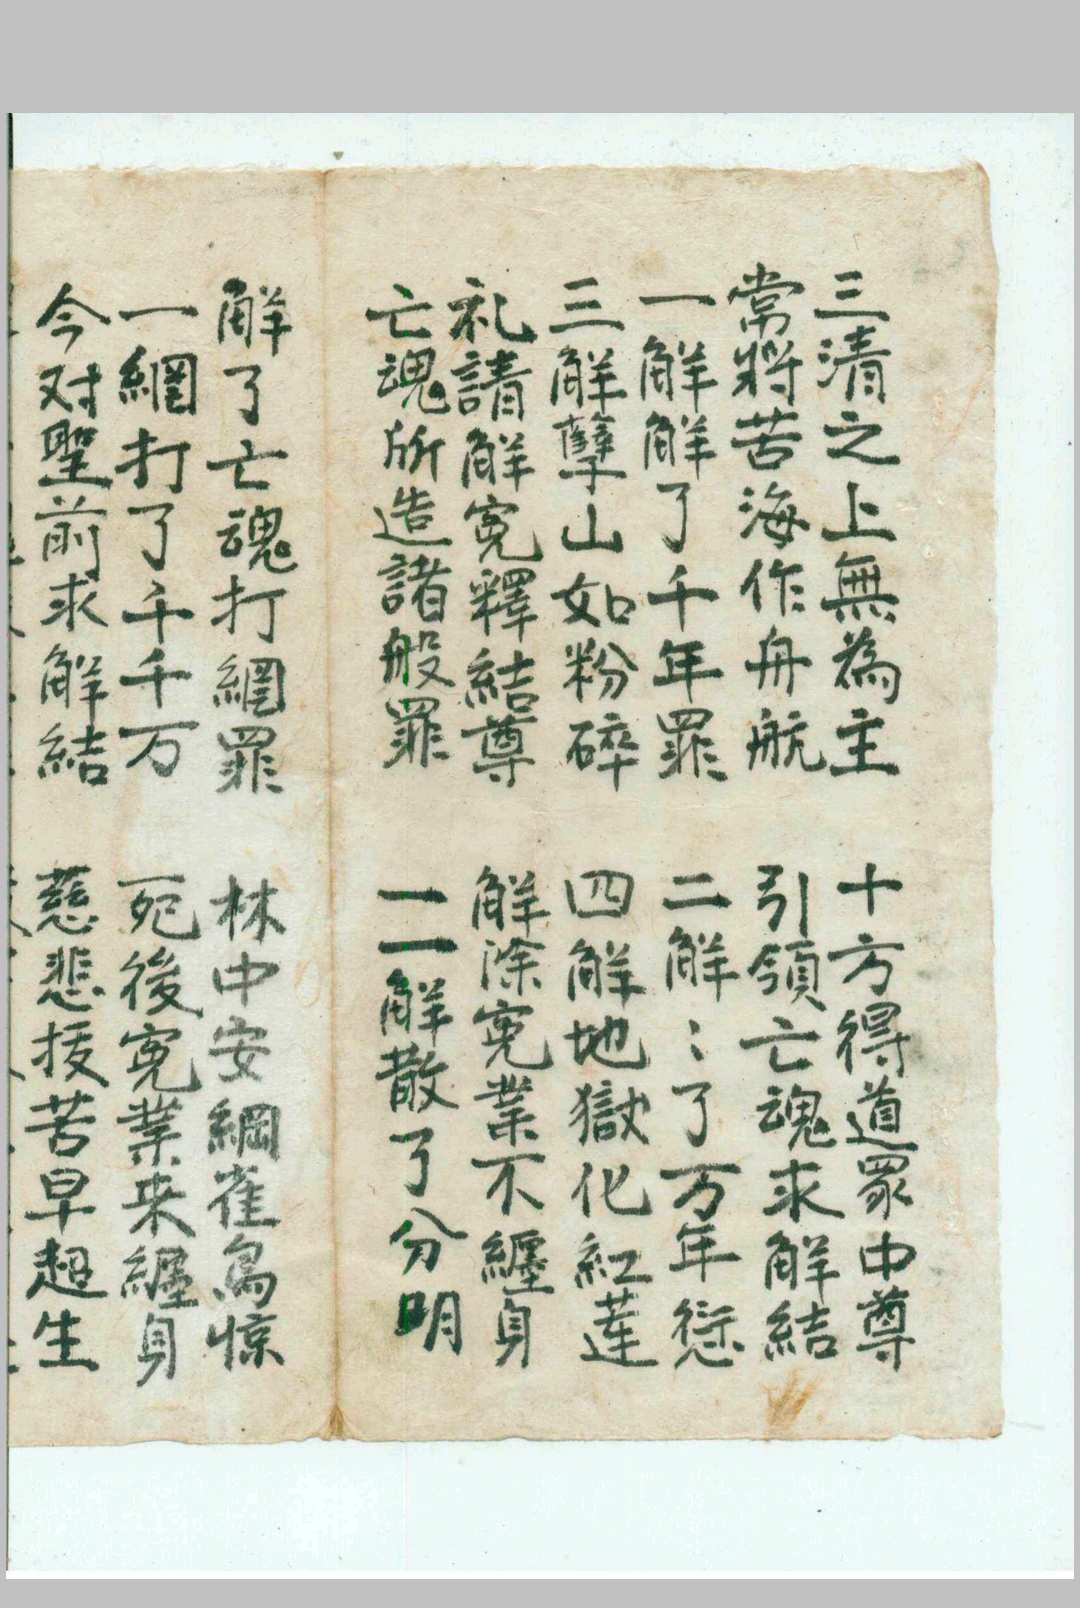 三清之上無為主　十方得道眾中尊
常將苦海作舟航　引領亡魂求解結
一解解了千年罪　二解〻了万年愆
三解孽山如粉碎　四解地獄化紅莲
礼請解冤釋結尊　解除冤業不纏身
亡魂所造諸般罪　一一解散了分明
解了亡魂打網罪　林中安網雀鳥惊
一網打了千千万　死後冤業来纏身
今对聖前求解結　慈悲拔苦早超生